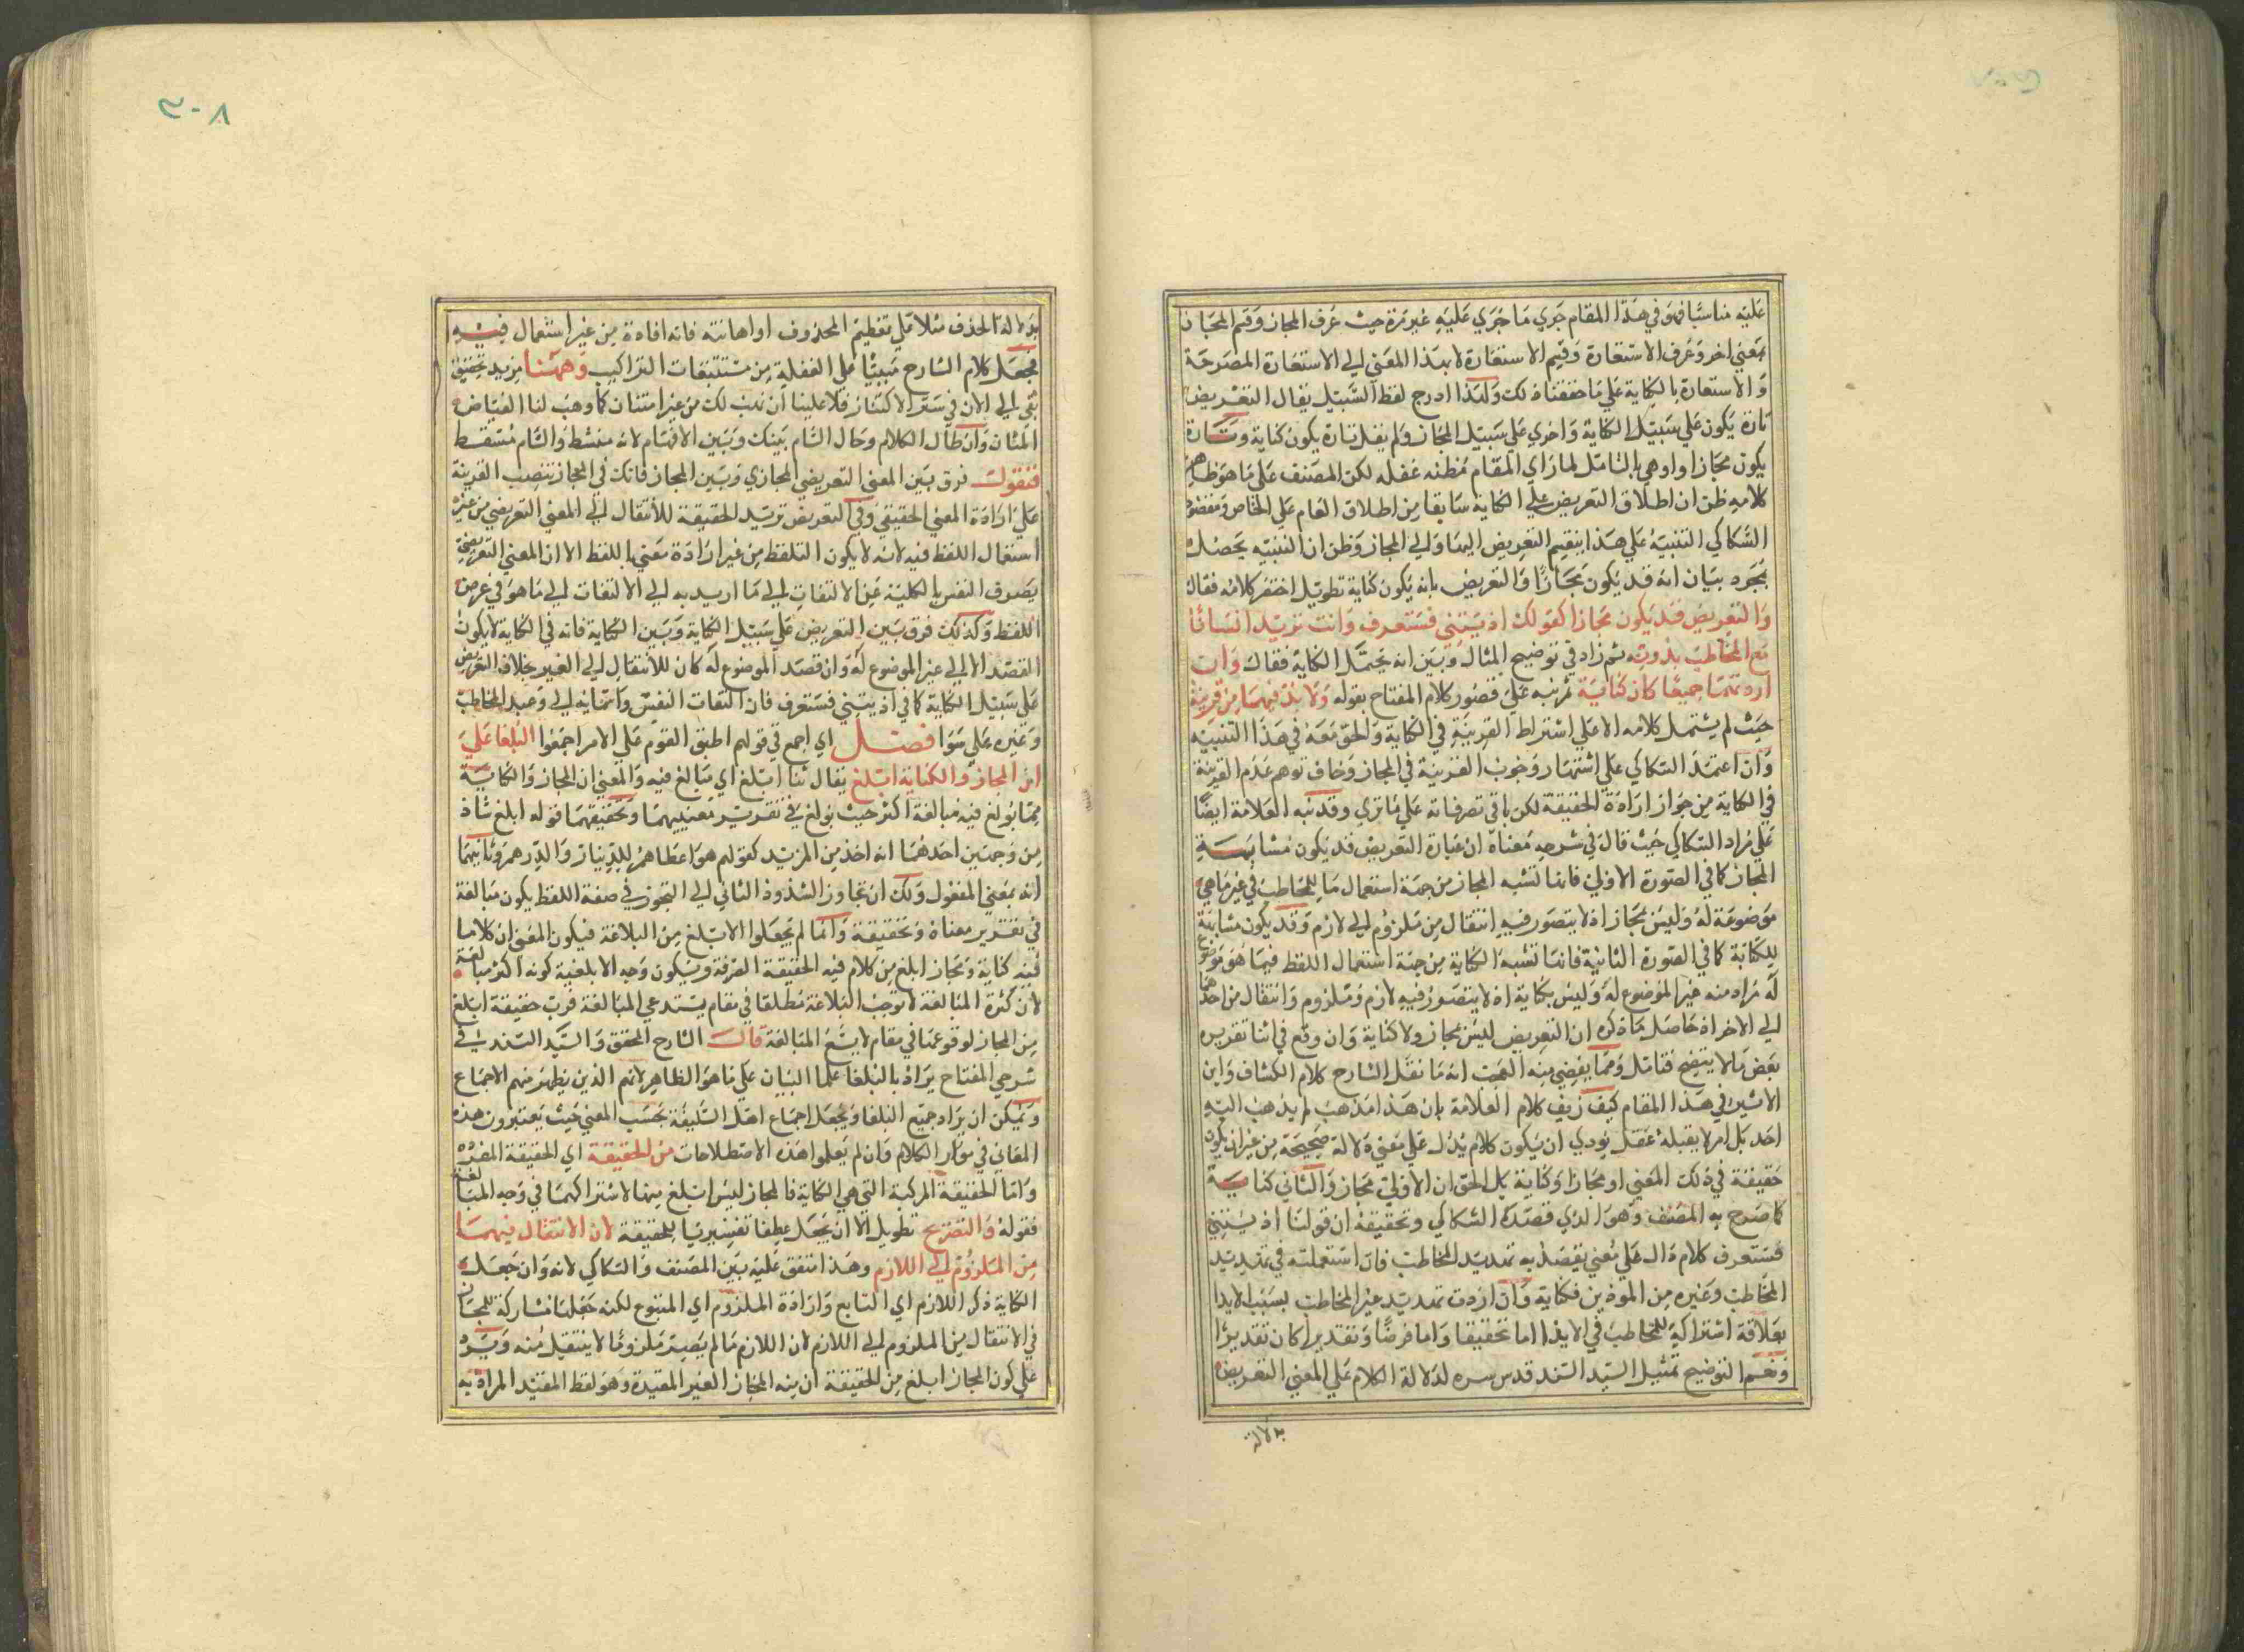 عليه مناسبا فهو في هذا المقام جري ما جري عليه غير مرة حيث عرف المجاز وقسم المجاز
بمعني اخر وعرف الاستعارة وقسم الاستعارة لا بهذا المعني الي الاستعارة المصرحة
والاستعارة بالكناية علي ما حققناه لك ولهذا ادرج لفظ السبيل يقال التعريض
تارة يكون علي سبيل الكناية واخري علي سبيل المجاز ولم يقل تارة يكون كناية وتارة
يكون مجازا واوهي بالتامل لما راي المقام مظنه غفله لكن المصنف علي ما هو ظاهر
كلامه ظن ان اطلاق التعريض علي الكناية سابقا من اطلاق العام علي الخاص
السكاكي التنبيه علي هذا بتقسيم التعريض اليها والي المجاز وظن ان التنبيه يحصل
بمجرد بيان انه قد يكون مجازا والتعريض بانه يكون كناية تطويل اختصر كلامه فقال
والتعريض قد يكون مجازا كقولك اذيتني فستعرف وانت تريد انسانا
مع المخاطب بدونه ثم زاد في توضيح المثال وبين انه يحتمل الكناية فقال وان
اردتهما جميعا كان كناية ثم نبه علي قصور كلام المفتاح بقوله ولا بد فيهما من قرينة
حيث لم يشتمل كلامه الا علي اشتراط القرينة في الكناية والحق معه في هذا التنبيه
وان اعتمد السكاكي علي اشتهار وجوب القرينة في المجاز وخاف توهم عدم القرينة
في الكناية من جواز ارادة الحقيقة لكن باقي تصرفاته علي ما تري وقد نبه العلامة ايضا
علي مراد السكاكي حيث قال في شرحه معناه ان عبارة التعريض قد يكون مشابهة
المجاز كما في الصورة الاولي فانها تشبه المجاز من جهة استعمال ما للمخاطب في غير ما هي
موضوعة له وليس مجاز اذ لا يتصور فيه انتقال من ملزوم الي لازم وقد يكون مشابهة
للكناية كما في الصورة الثانية فانها تشبه الكناية من جهة استعمال اللفظ فيما هو موضوع
له مراد منه غير الموضوع له وليس بكناية اذ لا يتصور فيه لازم وملزوم وانتقال من احدهما
الي الاخر اذ حاصل ما ذكره ان التعريض ليس مجاز ولا كناية وان وقع في اثنا تقريره
بعض ما لا يتضح فتامل ومما يفضي منه العجب انه ما نقل الشارح كلام الكشاف وابن
الاثير في هذا المقام كيف زيف كلام العلامة بان هذا مذهب لم يذهب اليه
احد بل امر لا يقبله عقل يودي ان يكون كلام يدل علي معني دلالة صحيحة من غير ان يكون
حقيقة في ذلك المعني او مجازا او كناية بل الحق ان الاولي مجاز والثاني كناية
كما صرح به المصنف وهو الذي قصده السكاكي وتحقيقه ان قولنا اذيتني
فستعرف كلام دال علي معني يقصد به تهديد المخاطب فان استعملته في تهديد
المخاطب وغيره من الموذين فكناية وان اردت تهديد غير المخاطب بسبب الايذا
بعلاقة اشتراكه للمخاطب في الايذا اما تحقيقا واما فرضا وتقديرا كان تقديرا
ونعم التوضيح تمثيل السيد السند قدس سره لدلالة الكلام علي المعني التعريض
بدلالة
٣٠٨
بدلالة الحذف مثلا علي تعظيم المحذوف او اهانته فانه افادة من غير استعمال فيه
فجعل كلام الشارح مبنيا علي الغفلة من مستتبعات التراكيب وههنا مزيد تحقيق
بقي الي الان في ستر الاكتناز فلا علينا ان نهب لك من غير امتنان كما وهب لنا الفياض
المنان وان طال الكلام وحال السام بينك وبين الافهام لانه منشط والسام مسقط
فنقول فرق بين المعني التعريضي المجازي وبين المجاز فانك في المجاز تنصب القرينة
علي ارادة المعني الحقيقي وفي التعريض تريد الحقيقة للانتقال الي المعني التعريضي من غير
استعمال اللفظ فيه لانه لا يكون التلفظ من غير ارادة معني باللفظ الا ان المعني التعريضي
يصرف النفس بالكلية عن الالتفات الي ما اريد به الي الالتفات الي ما هو في عرض
اللفظ وكذلك فرق بين التعريض علي سبيل الكناية وبين الكناية فانه في الكناية لا يكون
القصد الا الي غير الموضوع له وان قصد الموضوع له كان للانتقال الي الغير بخلاف التعريض
علي سبيل الكناية كما في اذيتني فستعرف فان التفات النفس واتمانه الي وعيد المخاطب
وغيره علي سوا فصل اي اجمع في قولهم اطبق القوم علي الامر اجمعوا البلغا علي
ان المجاز والكناية ابلغ يقال ثنا ابلغ اي مبالغ فيه والمعني ان المجاز والكناية
مما بولغ فيه مبالغة اكثر حيث بولغ في تقرير معنييهما وتحقيقهما قوله ابلغ شاذ
من وجهين احدهما انه اخذ من المزيد كقولهم هو اعطاهم للدينار والدرهم وثانيهما
انه بمعني المفعول ولك ان تجاوز الشذوذ الثاني الي التجوز في صفة اللفظ يكون مبالغة
في تقدير معناه وتحقيقه وانما لم تجعلوا الابلغ من البلاغة فيكون المعني ان كلاما
فيه كناية ومجاز ابلغ من كلام فيه الحقيقة الصرفة ويكون وجه الابلغية كونه اكثر مبالغة
لان كثرة المبالغة لا توجب البلاغة مطلقا في مقام يستدعي المبالغة فرب حقيقة ابلغ
من المجاز لوقوعها في مقام لا يسع المبالغة قال الشارح المحقق والسيد السند في
شرحي المفتاح يراد بالبلغا علما البيان علي ما هو الظاهر لانهم الذين يظهر منهم الاجماع
ويمكن ان يراد جميع البلغا ويجعل اجماع اهل السليقة بحسب المعني حيث يعتبرون هذه
المعاني في موار الكلام وان لم يعلموا هذه الاصطلاحات من الحقيقة اي الحقيقة المفردة
واما الحقيقة المركبة التي هي الكناية فالمجاز ليس ابلغ منها لاشتراكهما في وجه المبالغة
فقوله والتصريح تطويل الا ان يجعل عطفا تفسيريا للحقيقة لان الانتقال فيهما
من الملزوم الي اللازم وهذا متفق عليه بين المصنف والسكاكي لانه وان جعل
الكناية ذكر اللازم اي التابع وارادة الملزوم اي المتبوع لكنه جعلها مشاركة للمجاز
في الانتقال من الملزوم الي اللازم لان اللازم ما لم يصر ملزوما لا ينتقل منه ويرد
علي كون المجاز ابلغ من الحقيقة ان منه المجاز الغير المقيدة وهو لفظ المقيد المراد به